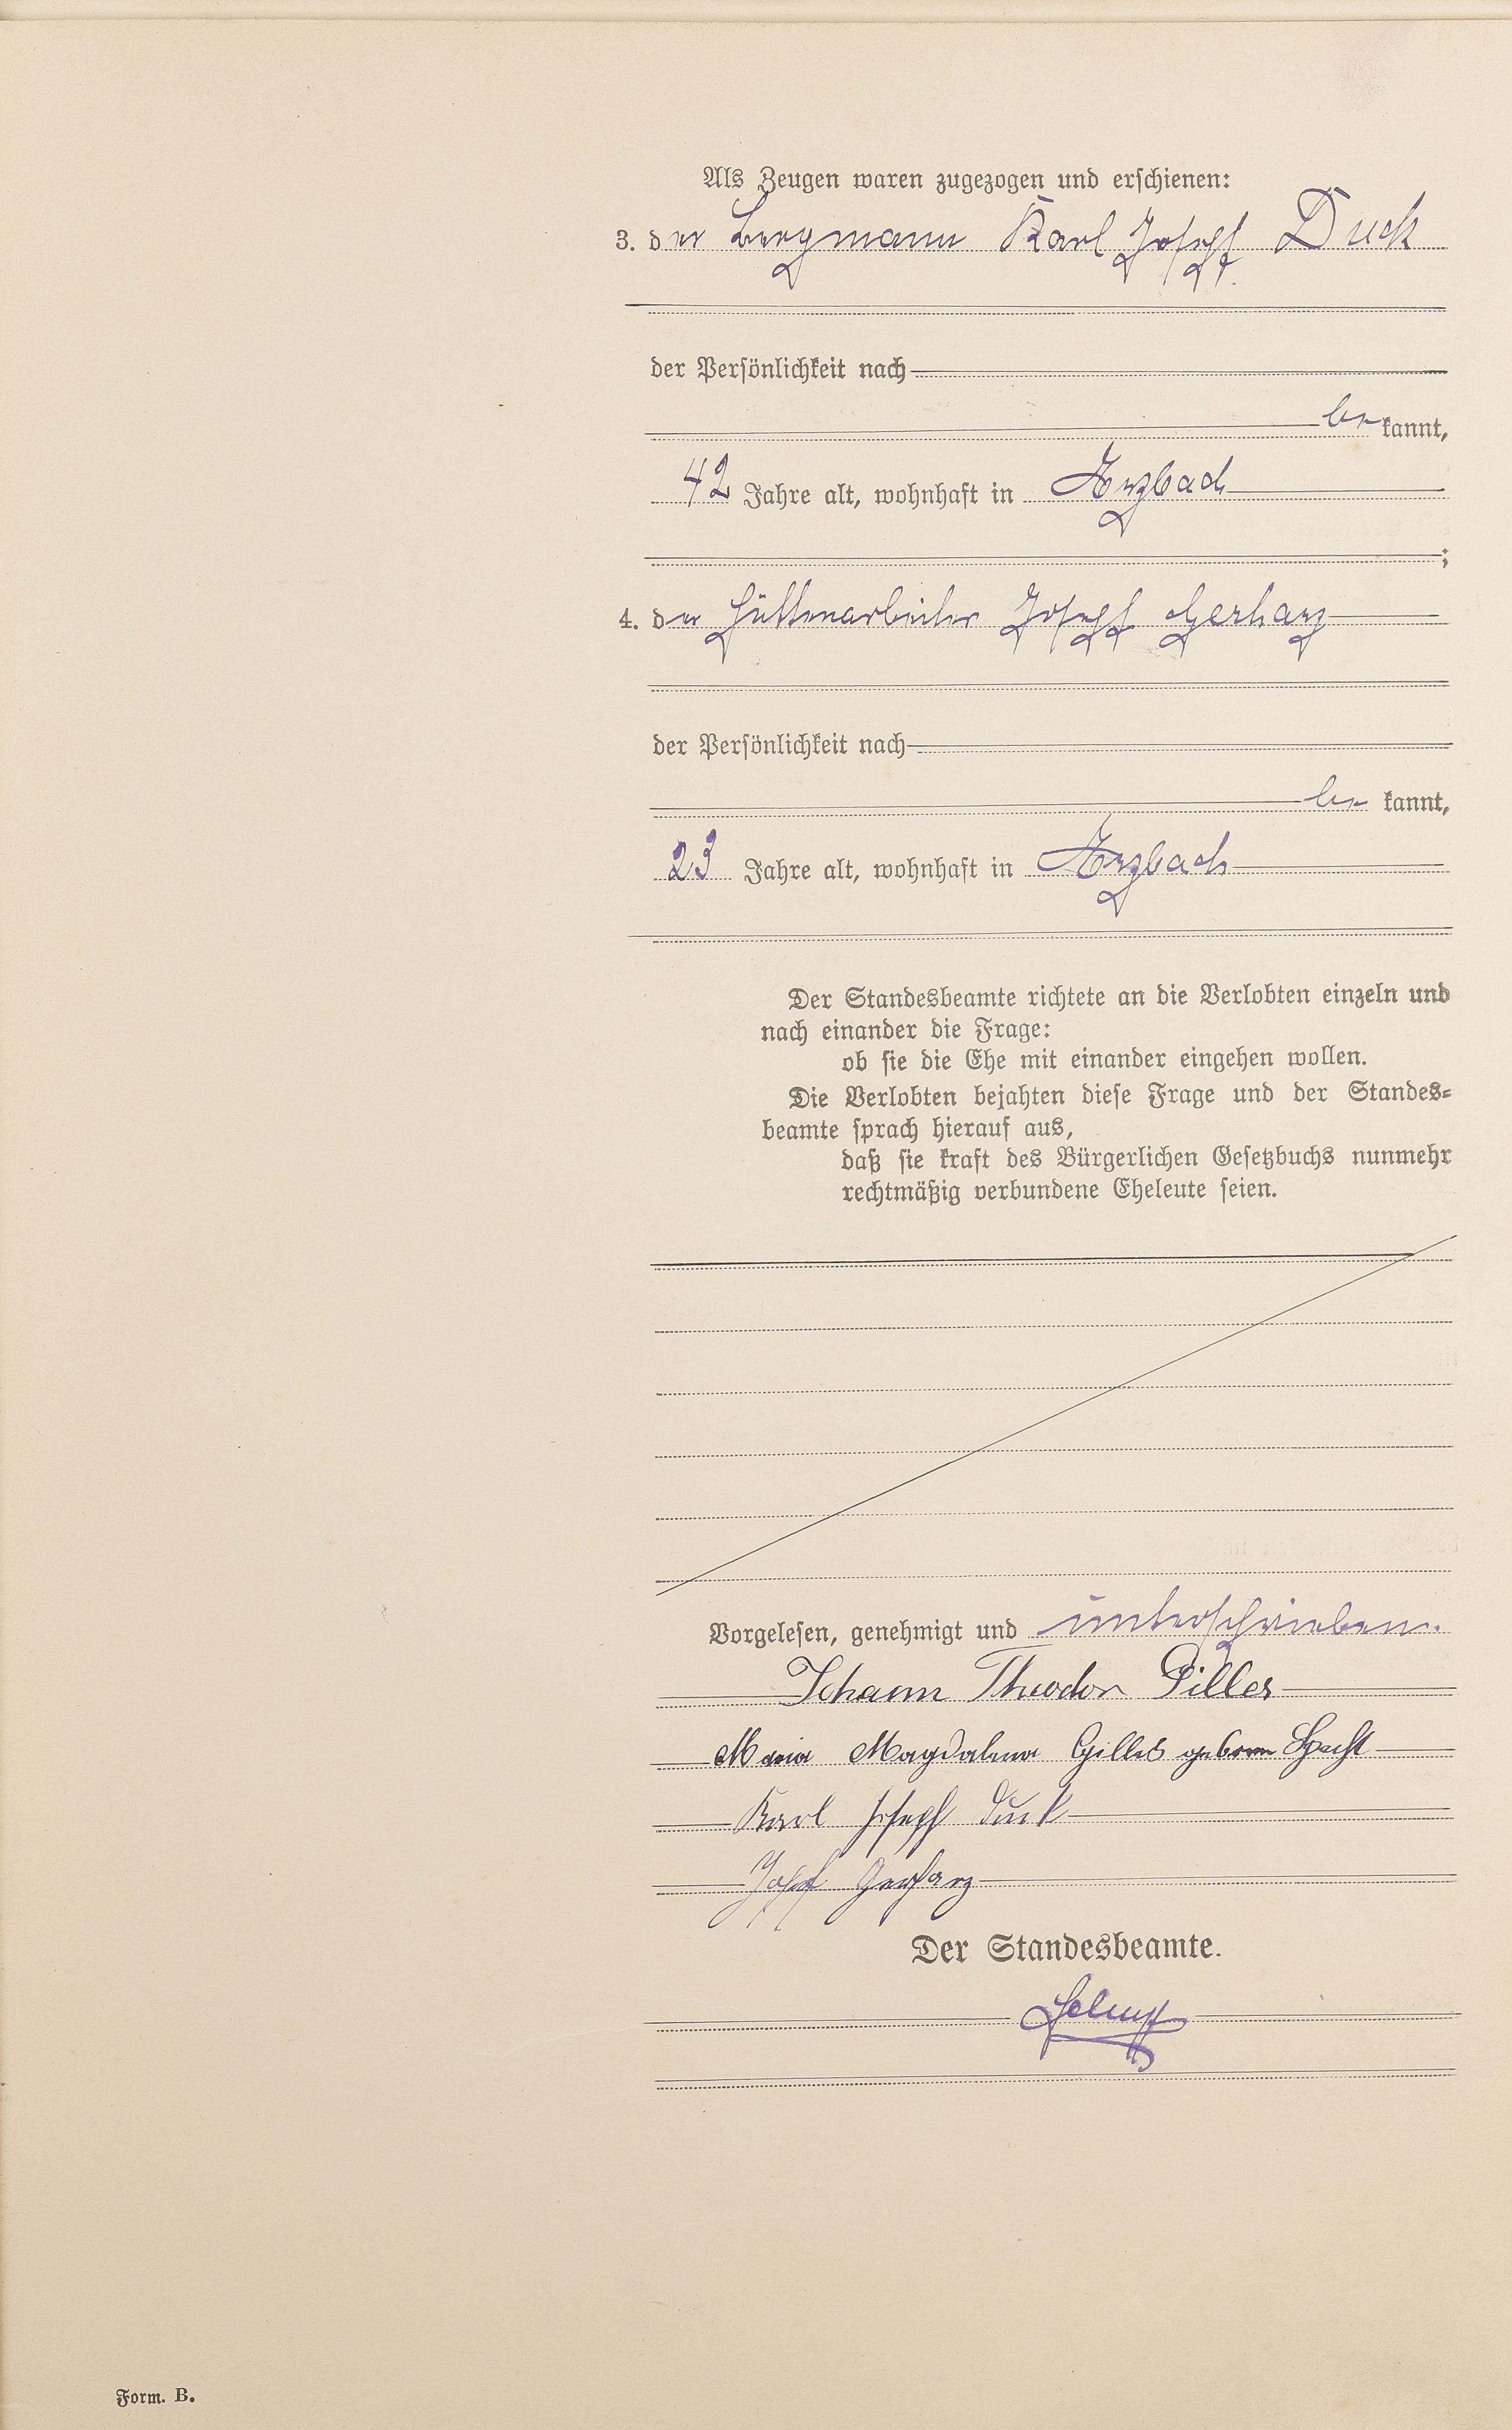 Als Zeugen waren zugezogen und erschienen:
3. der Bergmann Karl Joseph Duck
der Persönlichkeit nach
be kannt,
42 Jahre alt, wohnhaft in Arzbach
;
4. der Hüttenarbeiter Joseph Gerharz
der Persönlichkeit nach
be kannt,
23 Jahre alt, wohnhaft in Arzbach
Der Standesbeamte richtete an die Verlobten einzeln und
nach einander die Frage:
ob sie die Ehe mit einander eingehen wollen.
Die Verlobten bejahten diese Frage und der Standes-
beamte sprach hierauf aus,
daß sie kraft des Bürgerlichen Gesetzbuchs nunmehr
rechtmäßig verbundene Eheleute seien.
Vorgelesen, genehmigt und unterschrieben.
Johann Theodor Gilles
Maria Magdalena Gilles geboren Specht
Karl Joseph Duck
Josef Gerharz
Der Standesbeamte.
Form. B.